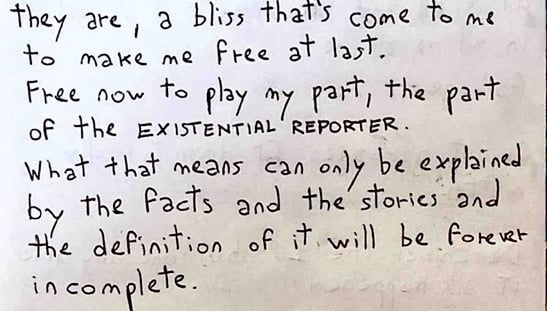 they are, a bliss that's come to me
to make me free at last.
Free now to play my part, the part
of the EXISTENTIAL REPORTER.
What that means can only be explained
by the facts and the stories and
the definition of it will be forever
incomplete.